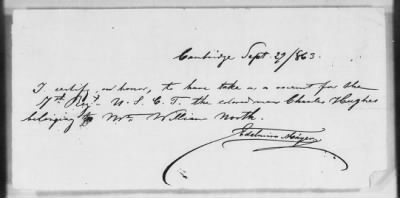 Cambridge Sept. 29/1863.
I certify, on honor, to have take as a recruit for the
7th Reg't U.S.C.T. the colored man Charles Hughes
belonging to Mr. William North.